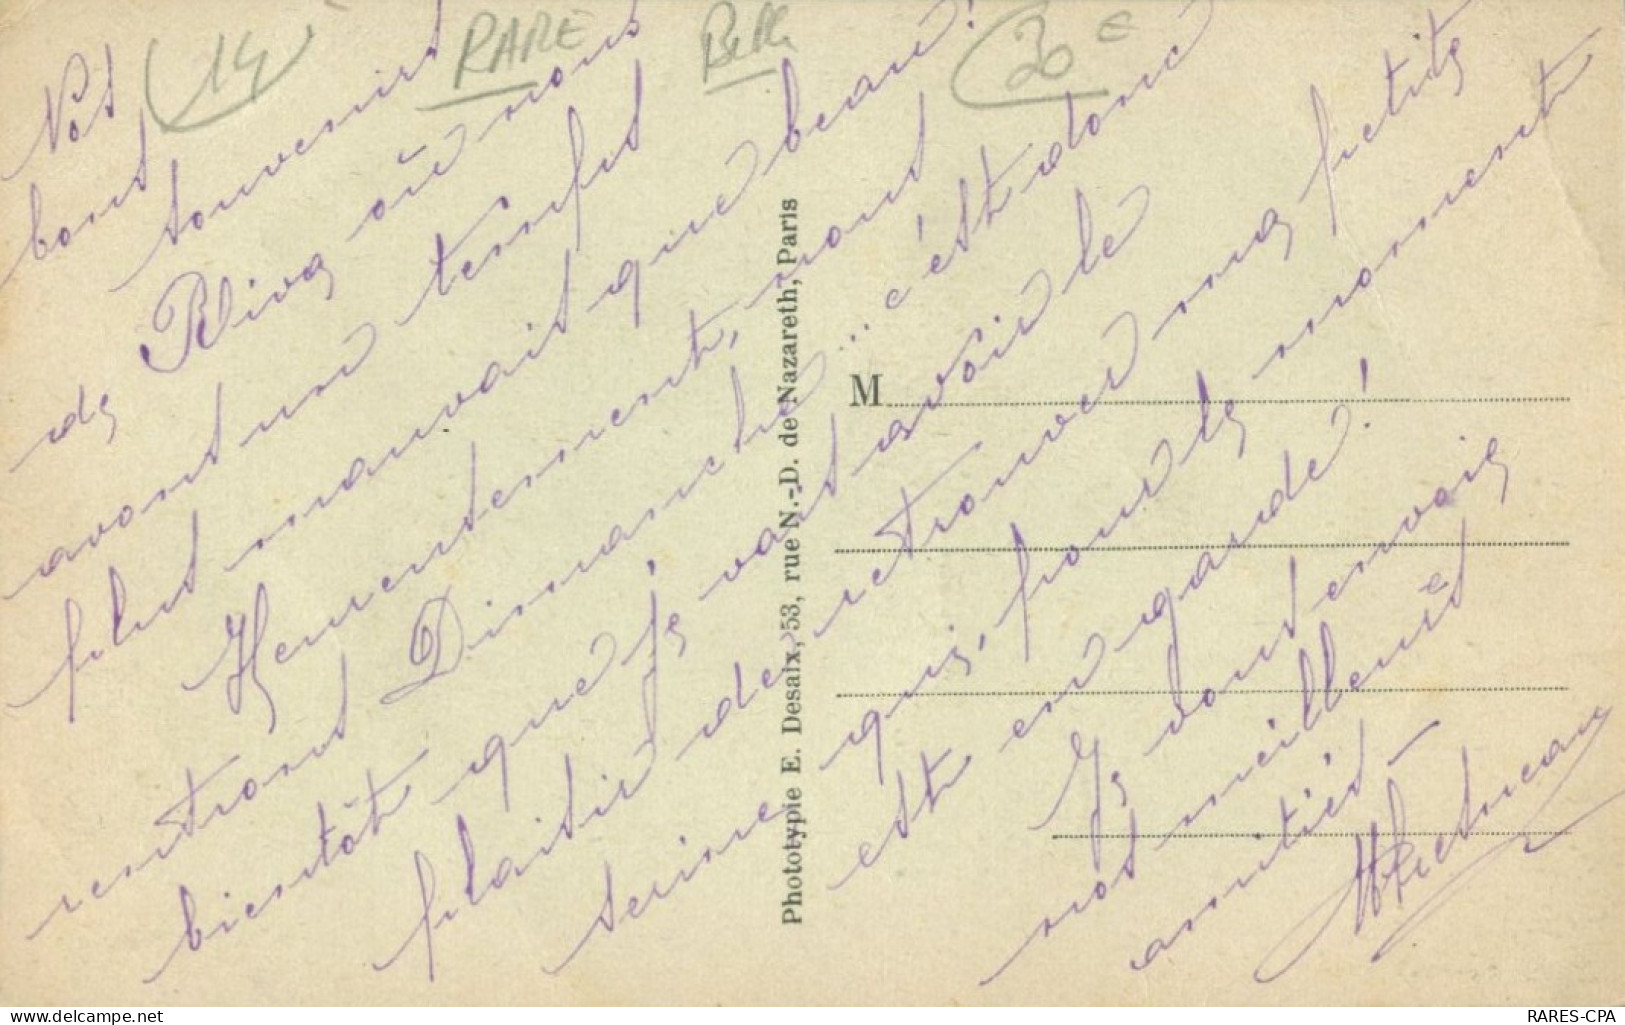 14
RARE
Belle
30 €
Nos
bons souvenirs
de Riva où nous
avons un temps
plus mauvais que beau !
Heureusement, nous
rentrons Dimanche ... c'est donc
bientôt que je vais avoir le
plaisir de retrouver ma petite
qui, pour le moment
est en garde !
Je vous envoie
nos meilleures
amitiés -
M
Phototypie E. Desaix, 53, rue N.-D. de Nazareth, Paris
RARES-CPA